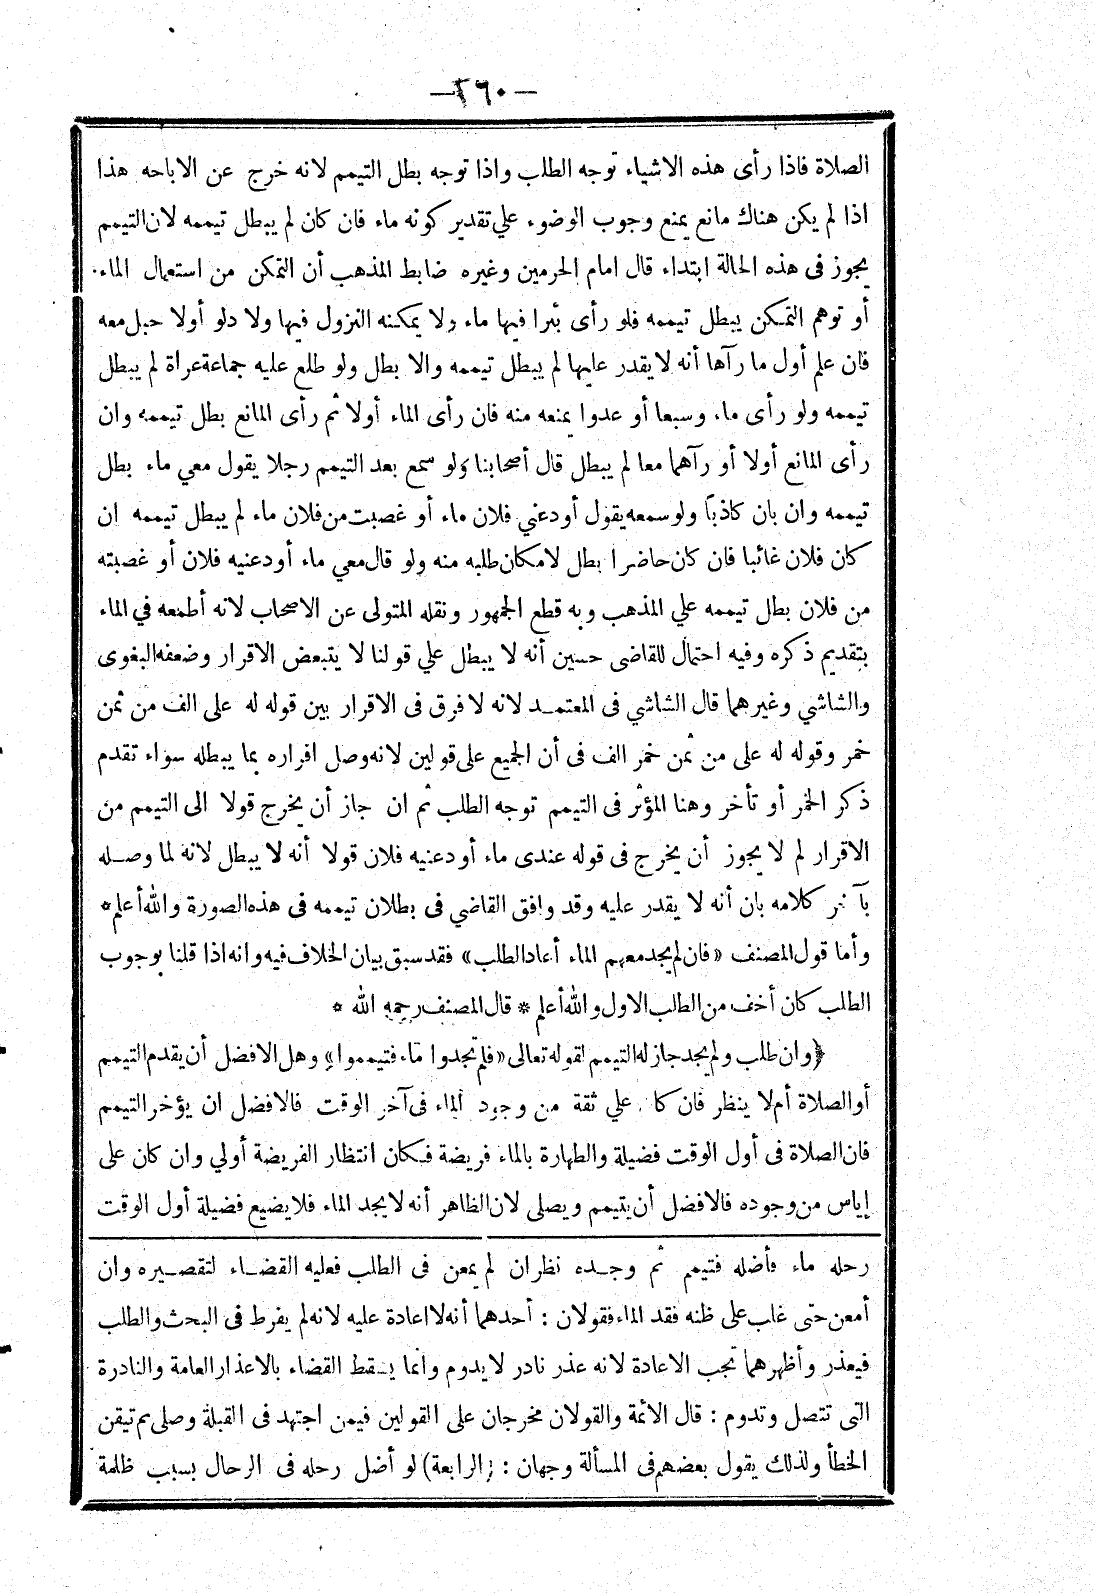 —٢٦٠—
الصلاة فاذا رأى هذه الاشياء توجه الطلب واذا توجه بطل التيمم لانه خرج عن الاباحه هذا
اذا لم يكن هناك مانع يمنع وجوب الوضوء علي تقدير كونه ماء فان كان لم يبطل تيممه لان التيمم
يجوز فى هذه الحالة ابتداء قال امام الحرمين وغيره ضابط المذهب أن التمكن من استعمال الماء
أو توهم التمكن يبطل تيممه فلو رأى بئرا فيها ماء ولا يمكنه النزول فيها ولا دلو أولا حبل معه
فان علم أول ما رآها أنه لا يقدر عليها لم يبطل تيممه والا بطل ولو طلع عليه جماعة عراة لم يبطل
تيممه ولو رأى ماء وسبعا أو عدوا يمنعه منه فان رأى الماء أولا ثم رأى المانع بطل تيممه وان
رأى المانع أولا أو رآهما معا لم يبطل قال أصحابنا ولو سمع بعد التيمم رجلا يقول معي ماء بطل
تيممه وان بان كاذباً ولو سمعه يقول أودعني فلان ماء أو غصبت من فلان ماء لم يبطل تيممه ان
كان فلان غائبا فان كان حاضرا بطل لامكان طلبه منه ولو قال معي ماء أودعنيه فلان أو غصبته
من فلان بطل تيممه علي المذهب وبه قطع الجمهور ونقله المتولى عن الاصحاب لانه أطمعه في الماء
بتقديم ذكره وفيه احتمال للقاضى حسين أنه لا يبطل علي قولنا لا يتبعض الاقرار وضعفه البغوى
والشاشي وغيرهما قال الشاشي فى المعتمد لانه لا فرق فى الاقرار بين قوله له على الف من ثمن
خمر وقوله له على من ثمن خمر الف فى أن الجميع على قولين لانه وصل اقراره بما يبطله سواء تقدم
ذكر الخمر أو تأخر وهنا المؤثر فى التيمم توجه الطلب ثم ان جاز أن يخرج قولا الى التيمم من
الاقرار لم لا يجوز أن يخرج فى قوله عندى ماء أودعنيه فلان قولا أنه لا يبطل لانه لما وصله
بآخر كلامه بان أنه لا يقدر عليه وقد وافق القاضي فى بطلان تيممه فى هذه الصورة والله أعلم *
وأما قول المصنف «فان لم يجد معهم الماء أعاد الطلب» فقد سبق بيان الخلاف فيه وانه اذا قلنا بوجوب
الطلب كان أخف من الطلب الاول والله أعلم * قال المصنف رحمه الله *
﴿وان طلب ولم يجد جاز له التيمم لقوله تعالى «فلم تجدوا ماء فتيمموا» وهل الافضل أن يقدم التيمم
أو الصلاة أم لا ينظر فان كان علي ثقة من وجود الماء فى آخر الوقت فالافضل ان يؤخر التيمم
فان الصلاة فى أول الوقت فضيلة والطهارة بالماء فريضة فكان انتظار الفريضة أولي وان كان على
إياس من وجوده فالافضل أن يتيمم ويصلى لان الظاهر أنه لا يجد الماء فلا يضيع فضيلة أول الوقت
رحله ماء فأضله فتيمم ثم وجده نظر ان لم يمعن فى الطلب فعليه القضاء لتقصيره وان
أمعن حتى غلب على ظنه فقد الماء فقولان : أحدهما أنه لا اعادة عليه لانه لم يفرط فى البحث والطلب
فيعذر وأظهرهما تجب الاعادة لانه عذر نادر لا يدوم وانما يسقط القضاء بالاعذار العامة والنادرة
التى تتصل وتدوم : قال الائمة والقولان مخرجان على القولين فيمن اجتهد فى القبلة وصلى ثم تيقن
الخطأ ولذلك يقول بعضهم فى المسألة وجهان : (الرابعة) لو أضل رحله فى الرحال بسبب ظلمة